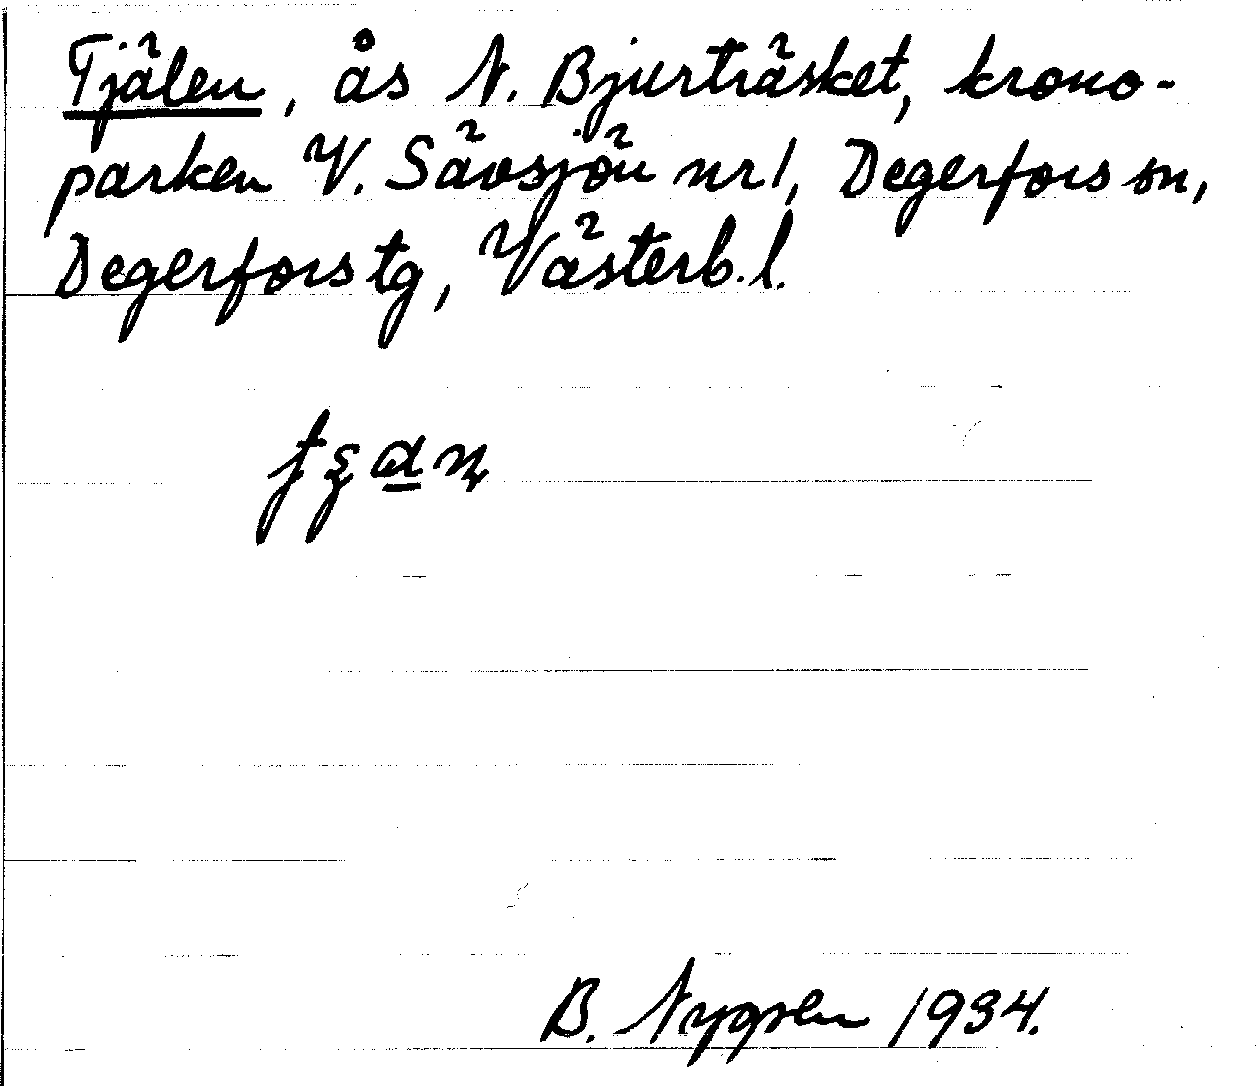 Tjälen, ås N. Bjurträsket, krono-
parken V. Sävsjön nr 1, Degerfors sn,
Degerfors tg, Västerb. l.
B. Nygren 1934.